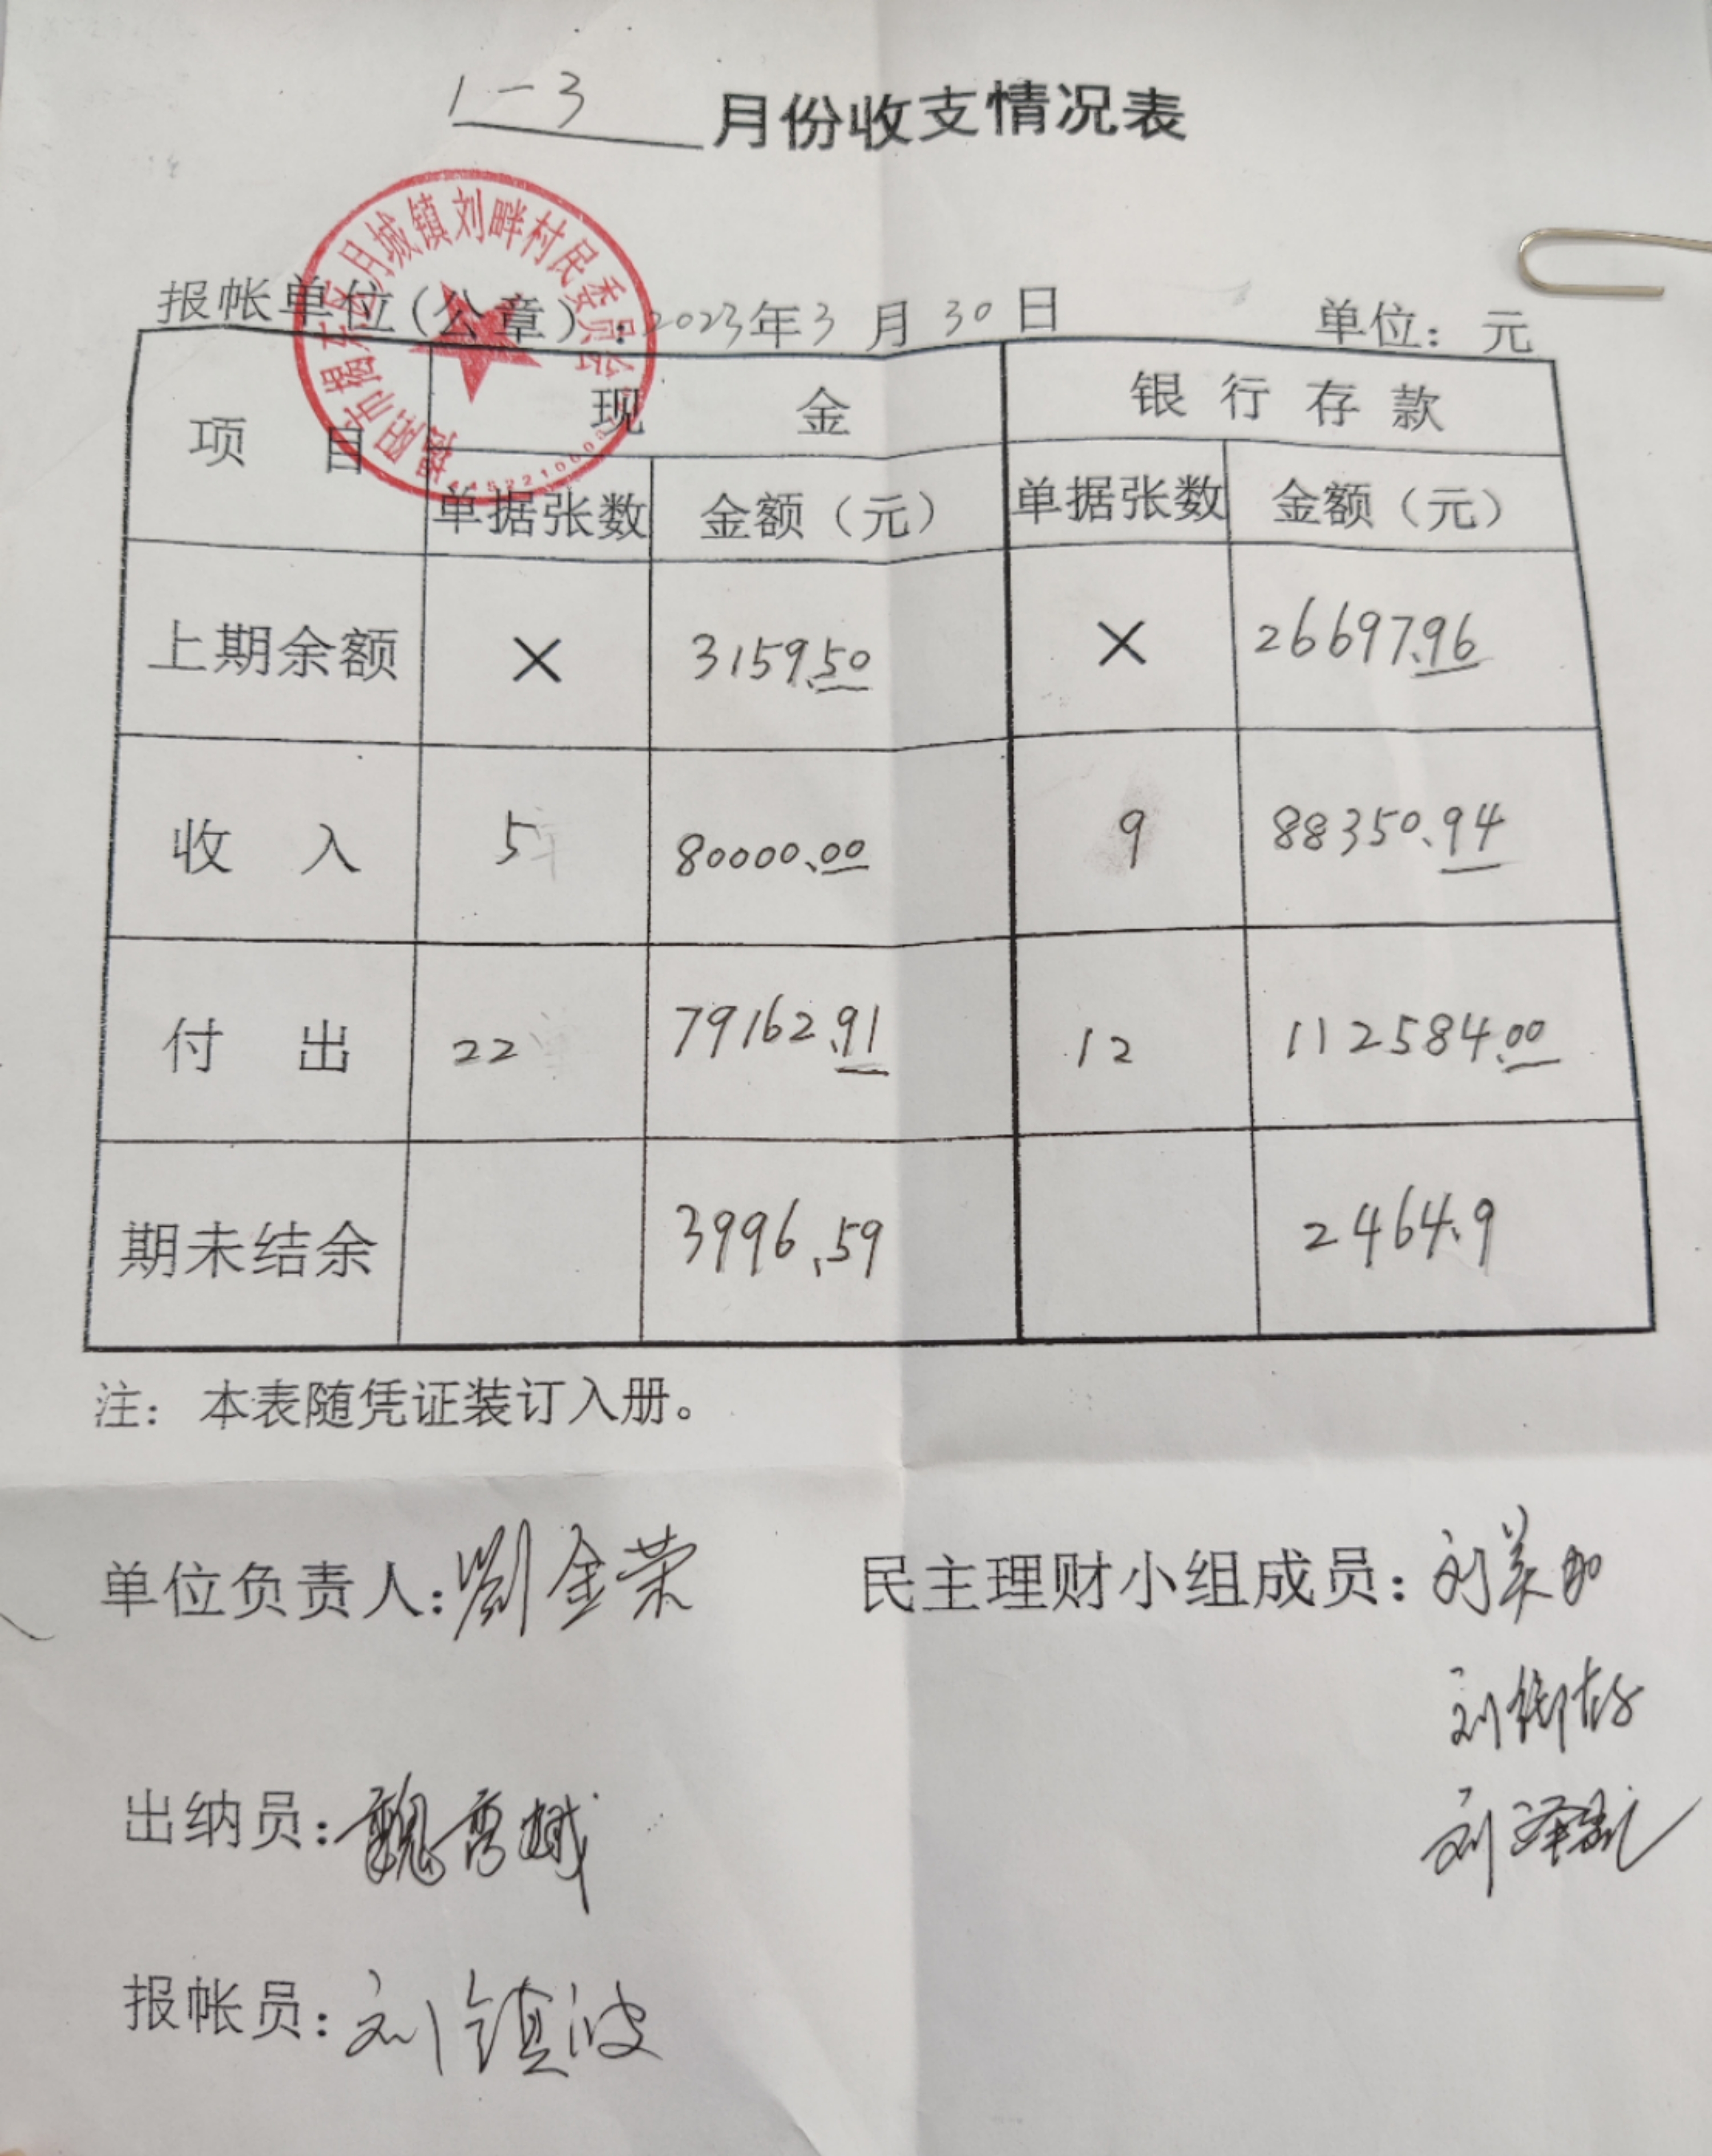 1-3 月份收支情况表
揭阳市揭东区月城镇刘畔村民委员会
报帐单位(公章):2023年3月30日 单位: 元
项 目 现 金 银行存款
单据张数 金额(元) 单据张数 金额(元)
上期余额 × 3159.50 × 26697.96
收 入 5 80000.00 9 88350.94
付 出 22 79162.91 12 112584.00
期未结余 3996.59 2464.9
注: 本表随凭证装订入册。
单位负责人:劉金荣 民主理财小组成员:刘
刘
出纳员:魏 刘泽凯
报帐员:刘镇波